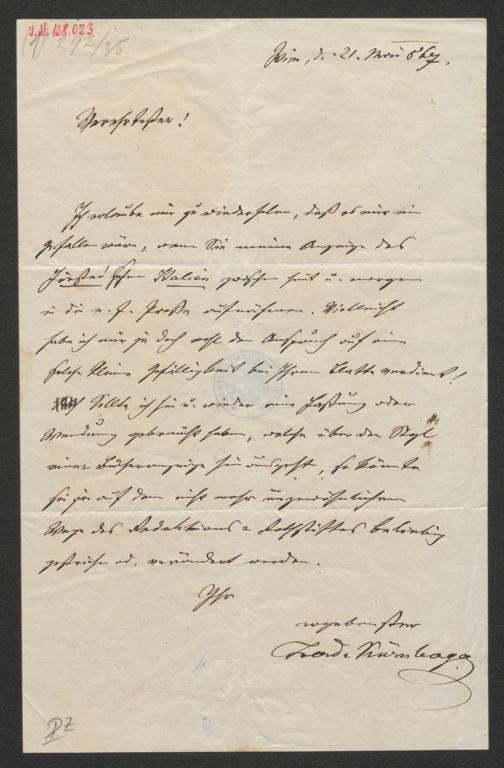 I.N. 128.023
Wien, d. 21. Mai
Verehrtester!
Ich erlaube mir zu wiederholen, daß es mir ein
Gefallen wäre, wenn Sie meine Anzeige des
Förster'schen Italien zwischen heut u. morgen
in die n. f. Presse aufnähmen. Vielleicht
habe ich mir ja doch wohl den Anspruch auf eine
solche kleine Gefälligkeit bei Ihrem Blatte verdient!
Sollte ich hie u. wieder eine Fassung oder
Wendung gebraucht haben, welche über den Styl
einer Bücheranzeige hinausgeht, so könnte
sie ja auf dem nicht mehr ungewöhnlichen
Wege des Redaktions-Rothstiftes beliebig
gestrichen od. verändert werden.
Ihr
ergebenster
Ferd. Kürnberger